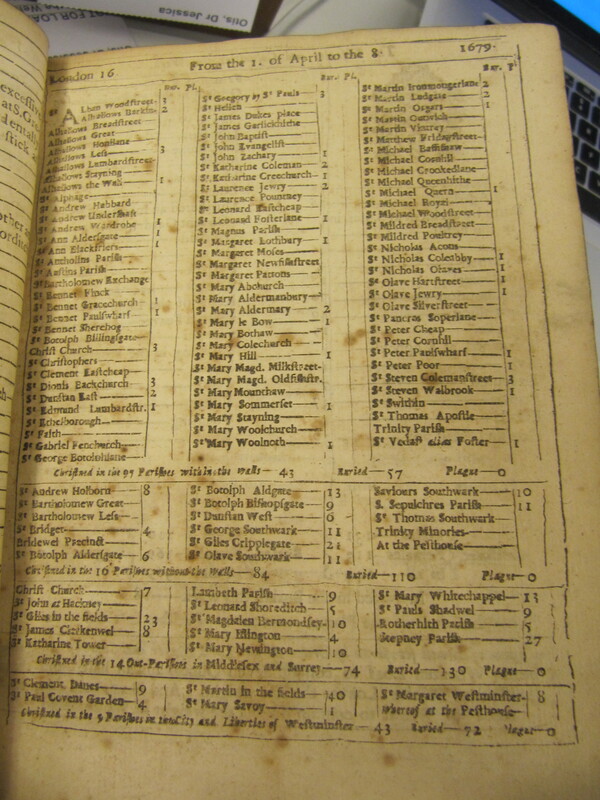 Otis, Dr Jessica
NOT FOR LOA
London 16 From the 1. of April to the 8. 1679.
Bur. Pl.
St Alban Woodstreet 3
Alhallows Barkin 2
Alhallows Breadstreet
Alhallows Great
Alhallows Honilane
Alhallows Less 3
Alhallows Lumbardstreet
Alhallows Stayning
Alhallows the Wall 1
St Alphage
St Andrew Hubbard
St Andrew Undershaft 1
St Andrew Wardrobe 1
St Ann Aldersgate 1
St Ann Blackfriers 1
St Antholins Parish
St Austins Parish
St Bartholomew Exchange
St Bennet Finck
St Bennet Gracechurch 1
St Bennet Paulswharf 1
St Bennet Sherehog
St Botolph Billingsgate
Christ Church 3
St Christophers
St Clement Eastcheap
St Dionis Backchurch 3
St Dunstan East 2
St Edmund Lumbardstr. 1
St Ethelborough
St Faith
St Gabriel Fenchurch
St George Botolphlane
Bur. Pl.
St Gregory by St Pauls 3
St Hellen
St James Dukes place
St James Garlickhithe
St John Baptist
St John Evangelist
St John Zachary 1
St Katharine Coleman 2
St Katharine Creechurch 1
St Laurence Jewry 2
St Laurence Pountney
St Leonard Eastcheap
St Leonard Fosterlane 1
St Magnus Parish
St Margaret Lothbury 1
St Margaret Moses
St Margaret Newfishstreet
St Margaret Pattons
St Mary Abchurch
St Mary Aldermanbury
St Mary Aldermary 2
St Mary le Bow 1
St Mary Bothaw
St Mary Colechurch
St Mary Hill 1
St Mary Magd. Milkstreet
St Mary Magd. Oldfishstr.
St Mary Mounthaw
St Mary Sommerset 1
St Mary Stayning
St Mary Woolchurch
St Mary Woolnoth 1
Bur. P
St Martin Ironmongerlane 2
St Martin Ludgate 2
St Martin Orgars 1
St Martin Outwich
St Martin Vintrey
St Matthew Fridaystreet
St Michael Bassishaw
St Michael Cornhil
St Michael Crookedlane
St Michael Queenhithe
St Michael Quern 1
St Michael Royal
St Michael Woodstreet
St Mildred Breadstreet
St Mildred Poultrey
St Nicholas Acons
St Nicholas Coleabby 1
St Nicholas Olaves 1
St Olave Hartstreet 1
St Olave Jewry 1
St Olave Silverstreet
St Pancras Soperlane
St Peter Cheap
St Peter Cornhil
St Peter Paulswharf 1
St Peter Poor 1
St Steven Colemanstreet 3
St Steven Walbrook 1
St Swithin
St Thomas Apostle
Trinity Parish
St Vedast alias Foster 1
Christned in the 97 Parishes within the Walls 43 Buried 57 Plague 0
St Andrew Holborn 8
St Bartholomew Great
St Bartholomew Less
St Bridget 4
Bridewel Precinct
St Botolph Aldersgate 6
St Botolph Aldgate 13
St Botolph Bishopsgate 9
St Dunstan West 6
St George Southwark 11
St Giles Cripplegate 21
St Olave Southwark 11
Saviours Southwark 10
S. Sepulchres Parish 11
St Thomas Southwark
Trinity Minories
At the Pesthouse
Christned in the 16 Parishes without the Walls 84 Buried 110 Plague 0
Christ Church 7
St John at Hackney
St Giles in the fields 23
St James Clerkenwel 8
St Katharine Tower
Lambeth Parish 9
St Leonard Shoreditch 5
St Magdalen Bermondsey 10
St Mary Islington 4
St Mary Newington 10
St Mary Whitechappel 13
St Pauls Shadwel 9
Rotherhith Parish 5
Stepney Parish 27
Christned in the 14 Out-Parishes in Middlesex and Surrey 74 Buried 130 Plague 0
St Clement Danes 9
St Paul Covent Garden 4
St Martin in the fields 40
St Mary Savoy 1
St Margaret Westminster 8
Whereof at the Pesthouse
Christned in the 5 Parishes in the City and Liberties of Westminster 43 Buried 72 Plague 0